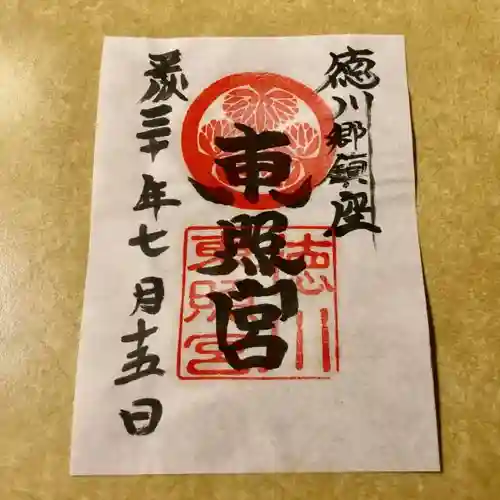 徳川郷鎮座
東照宮
徳川
東照宮
平成三十年七月十五日